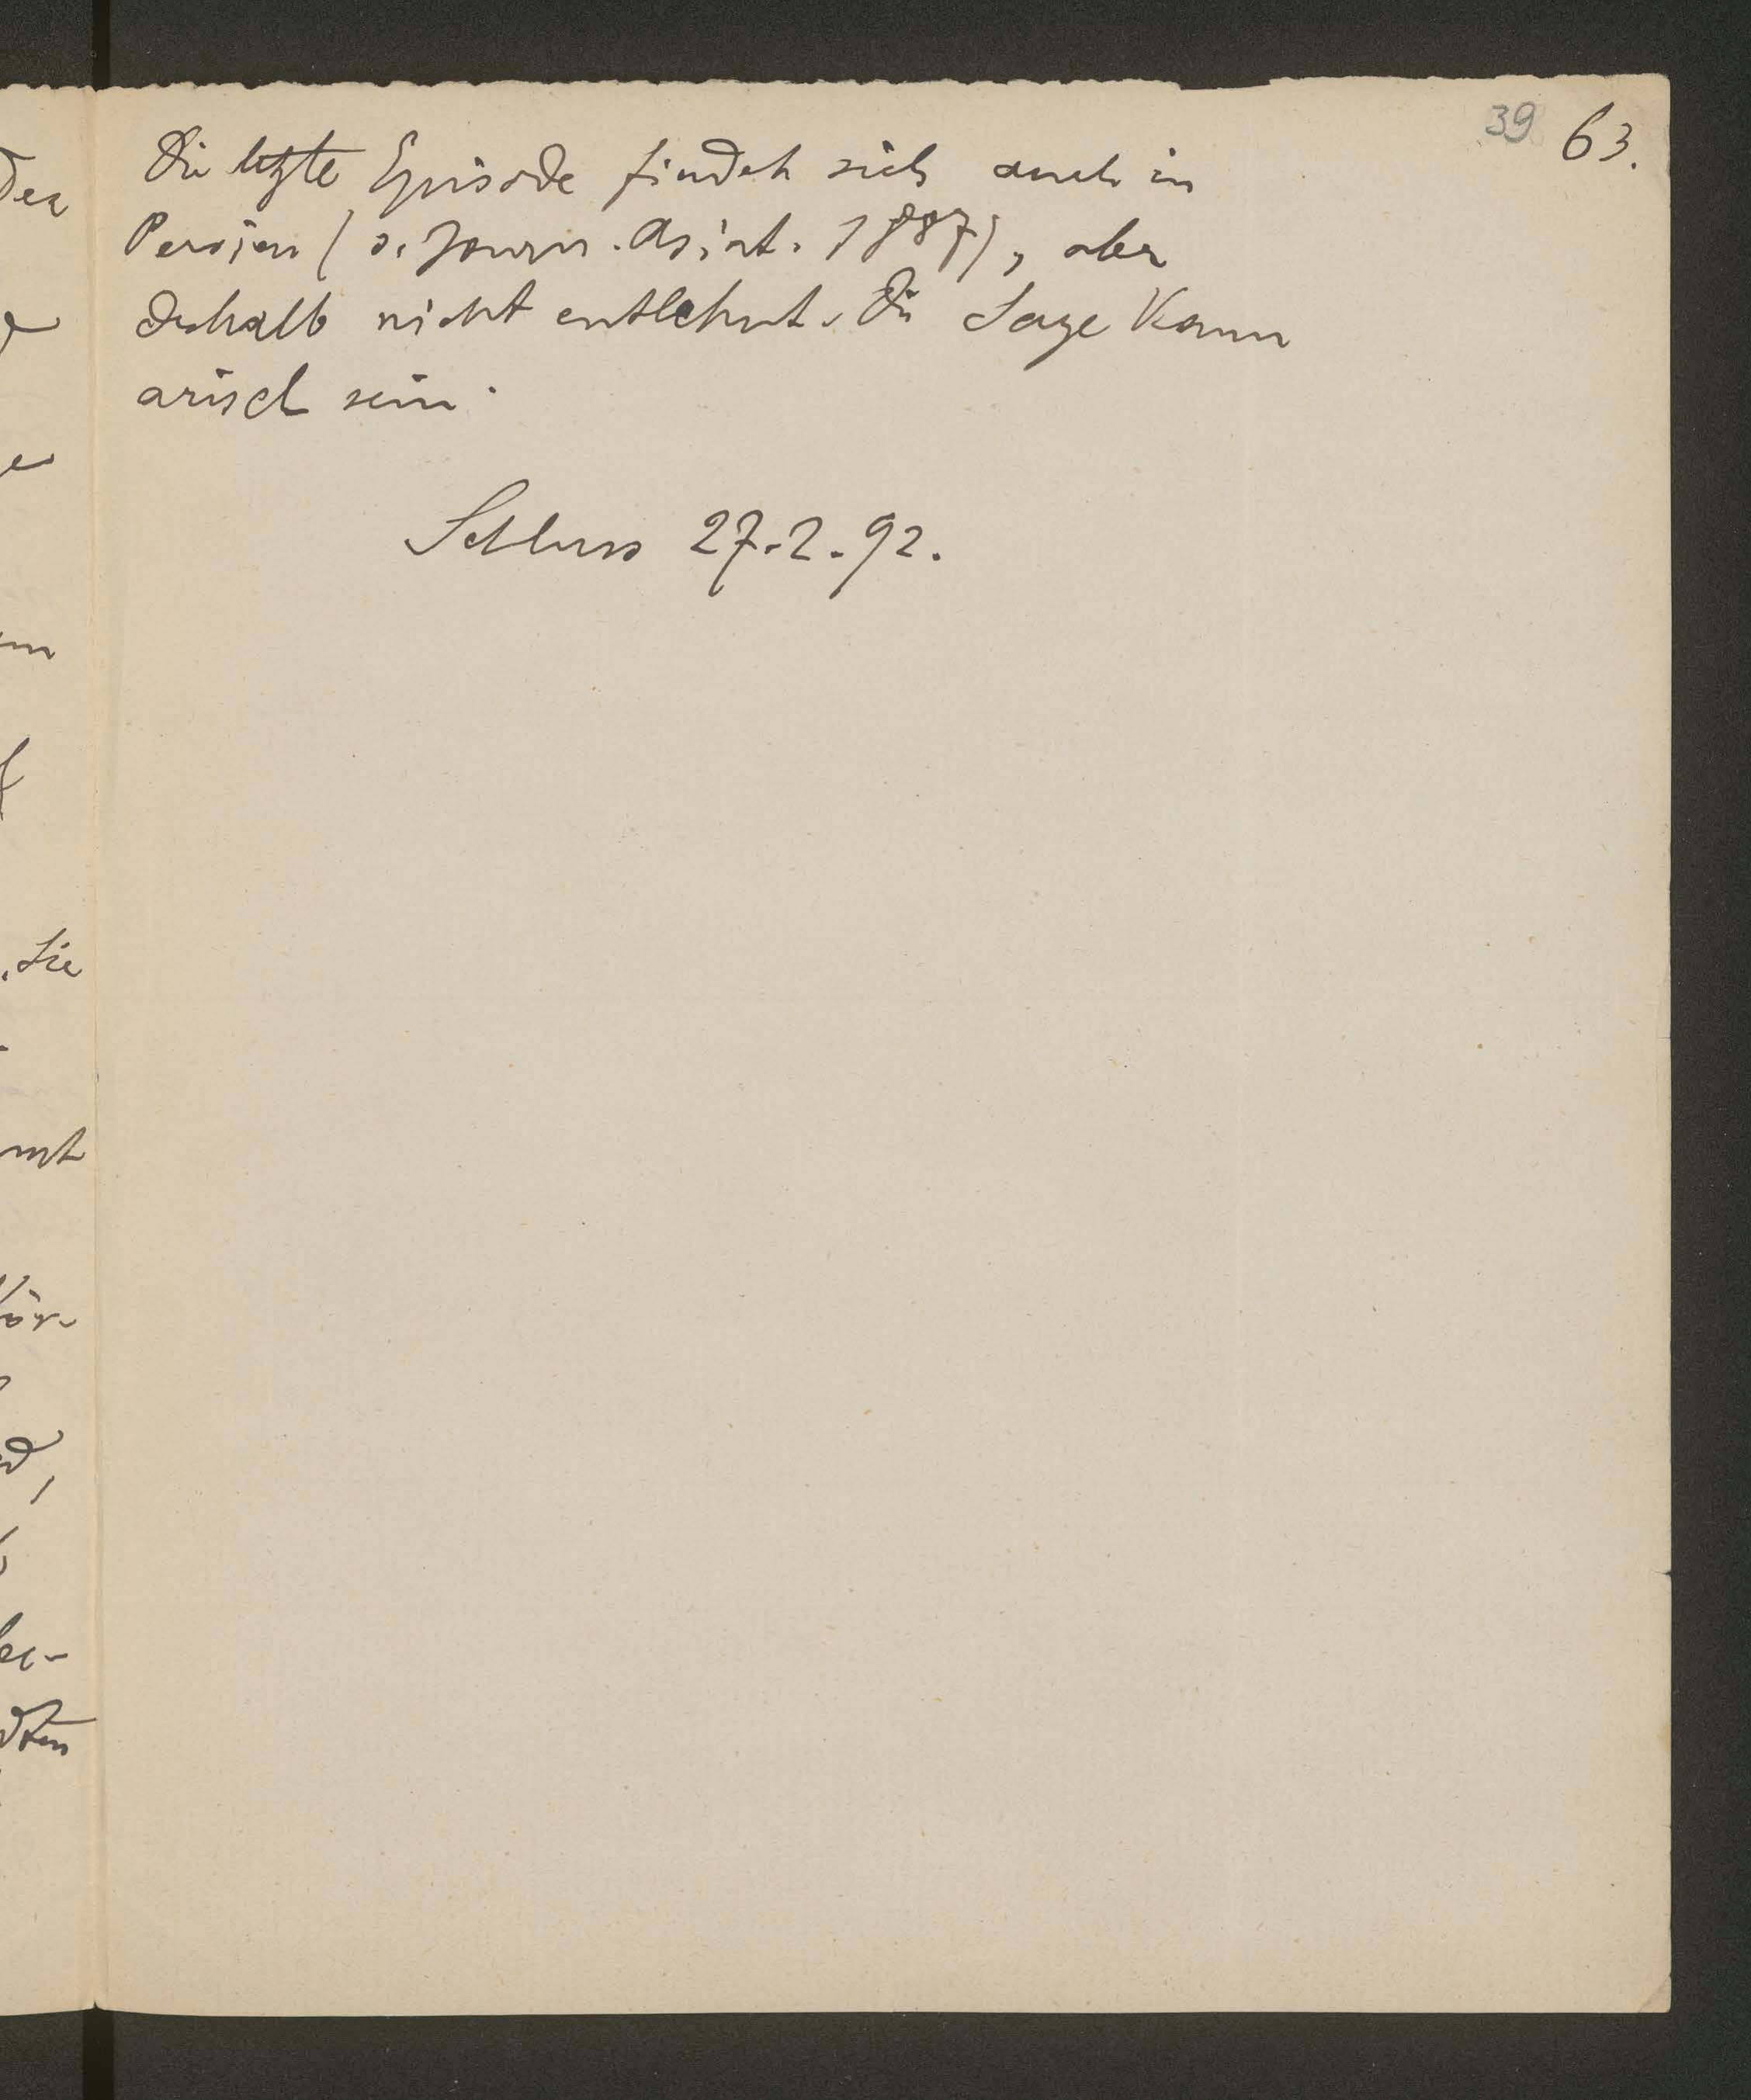 39 63.
Die letzte Episode findet sich auch in
Persien (s. Journ. Asiat. 1887), aber
deshalb nicht entlehnt. Die Sage kann
arisch sein.
Schluss 27.2.92.